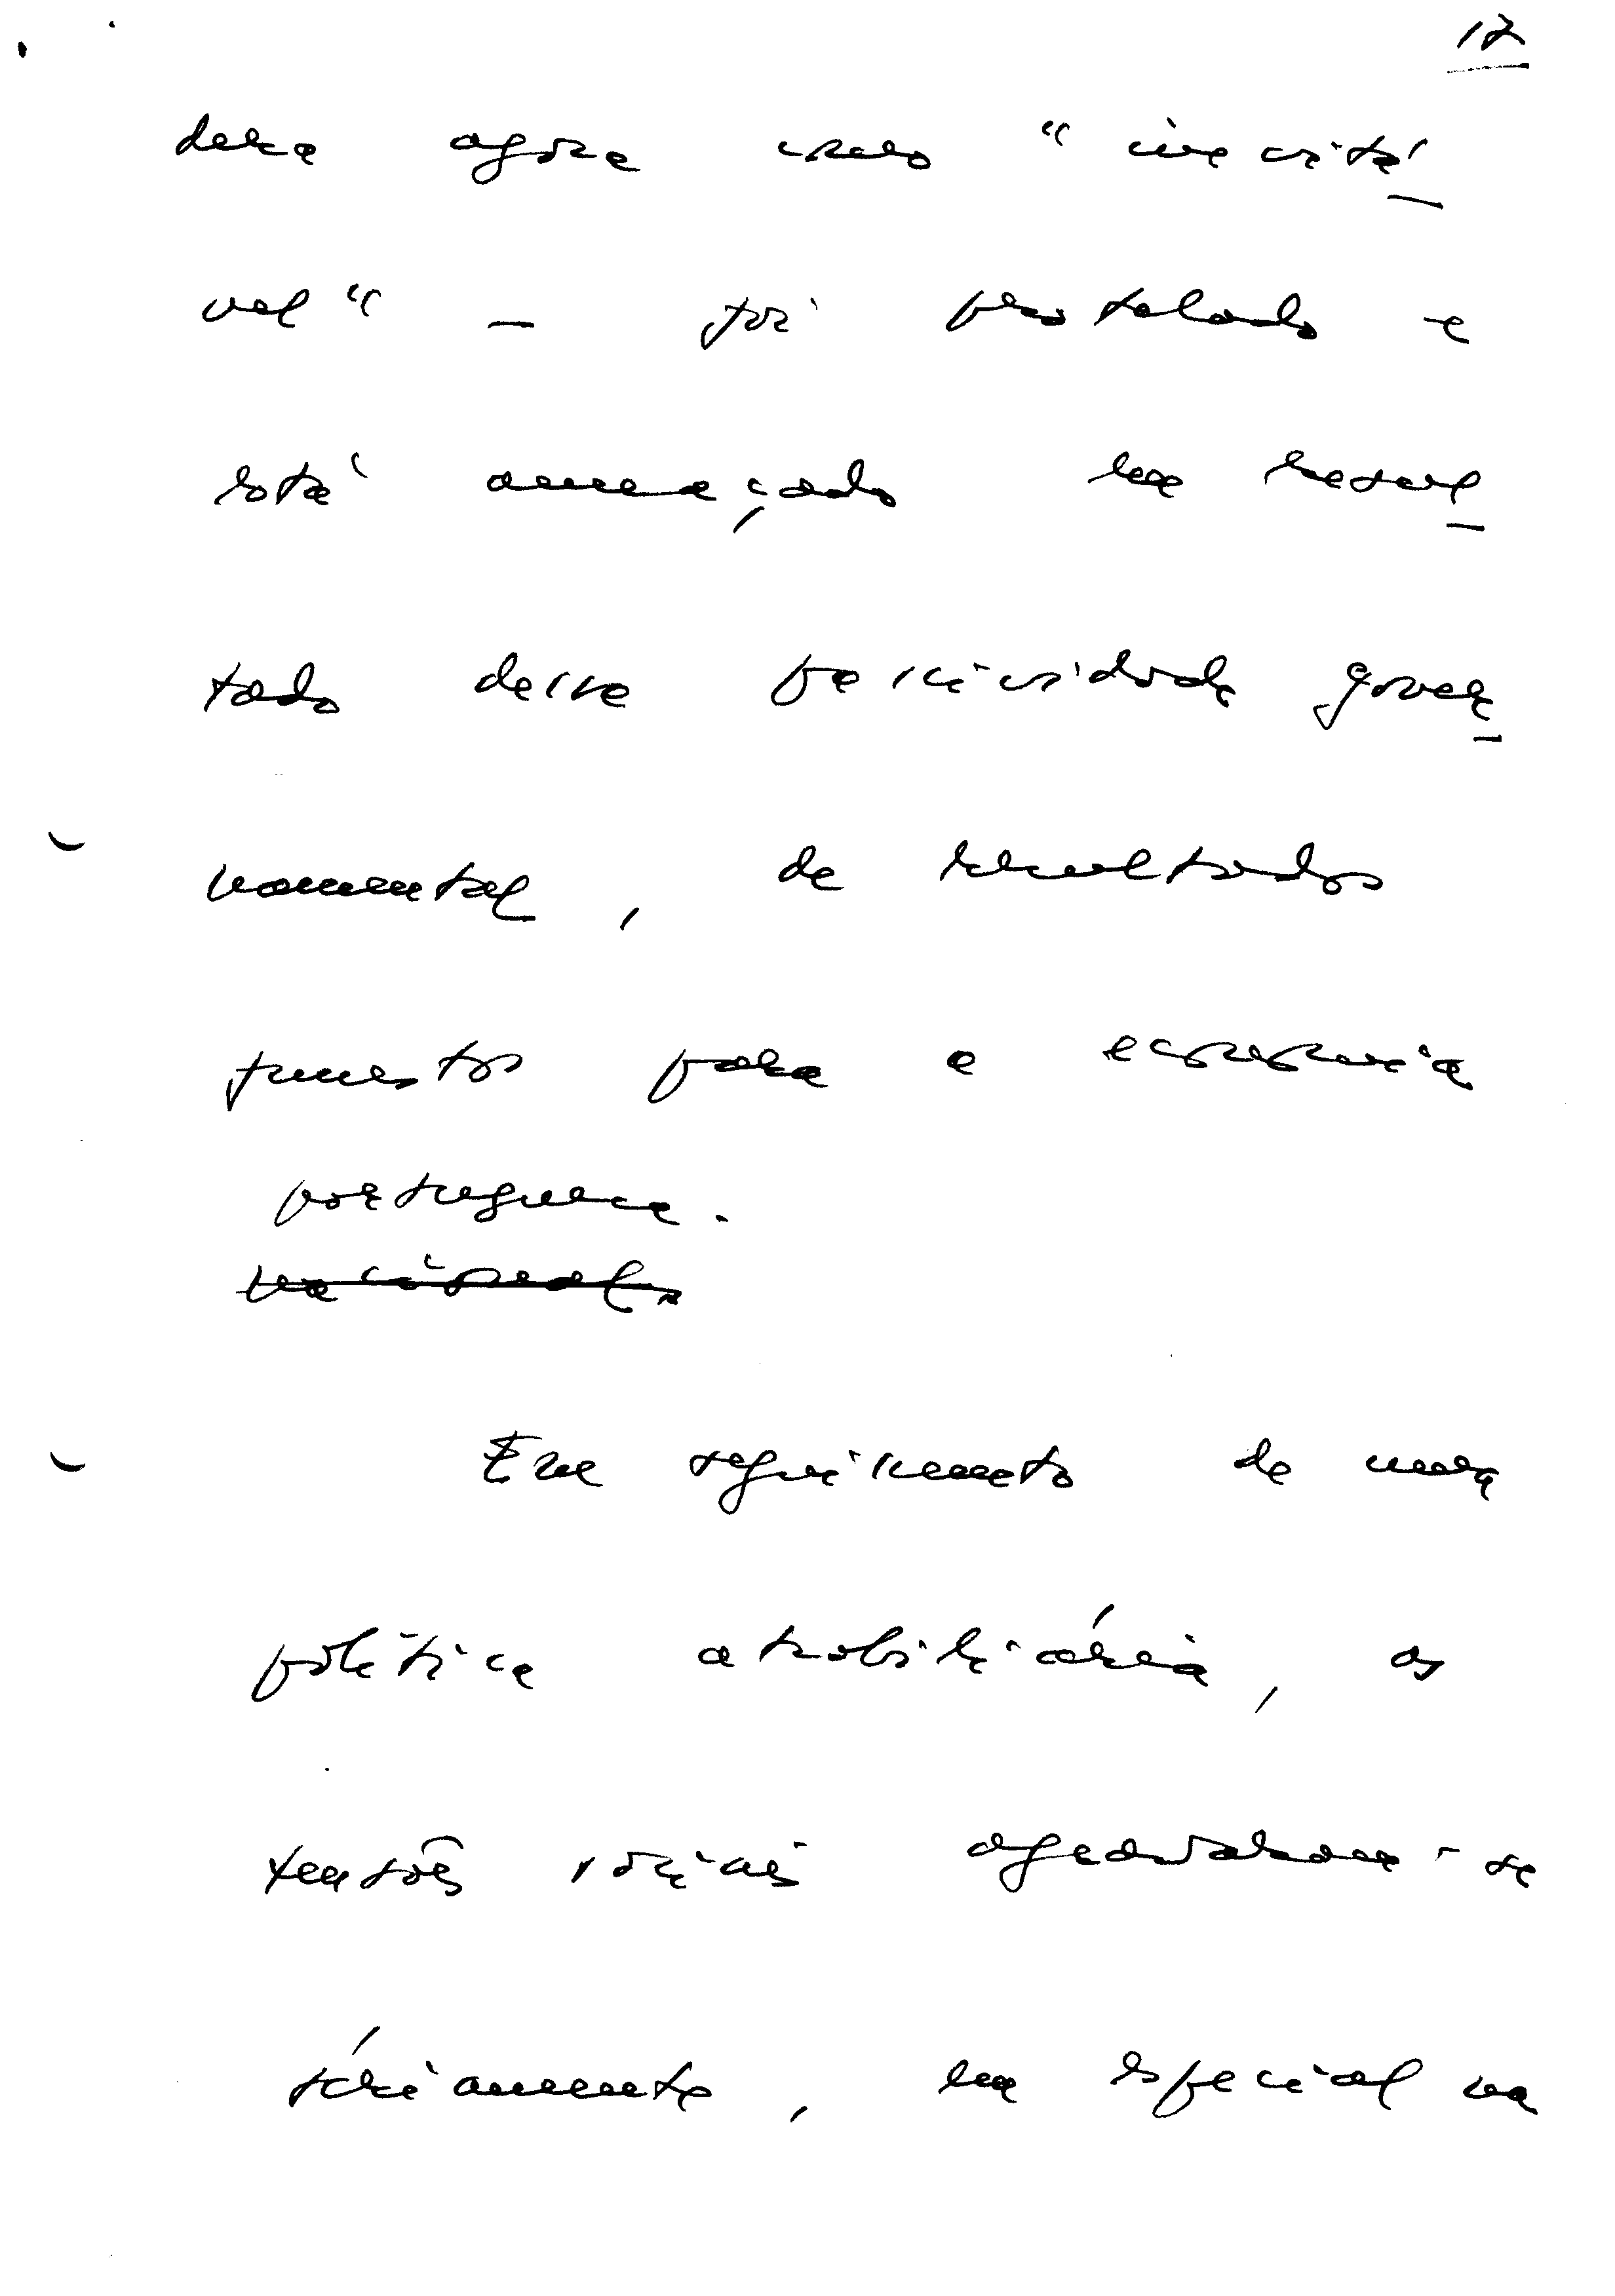 17
dera agora como "inevitá
vel" — foi protelado e
está ameaçado em resul
tado dessa passividade gover
namental, de resultados
funestos para a economia
portuguesa.
nacional.
Em seguimento de uma
política atrabiliária, as
tensões sociais agravaram-se
sériamente, em especial na